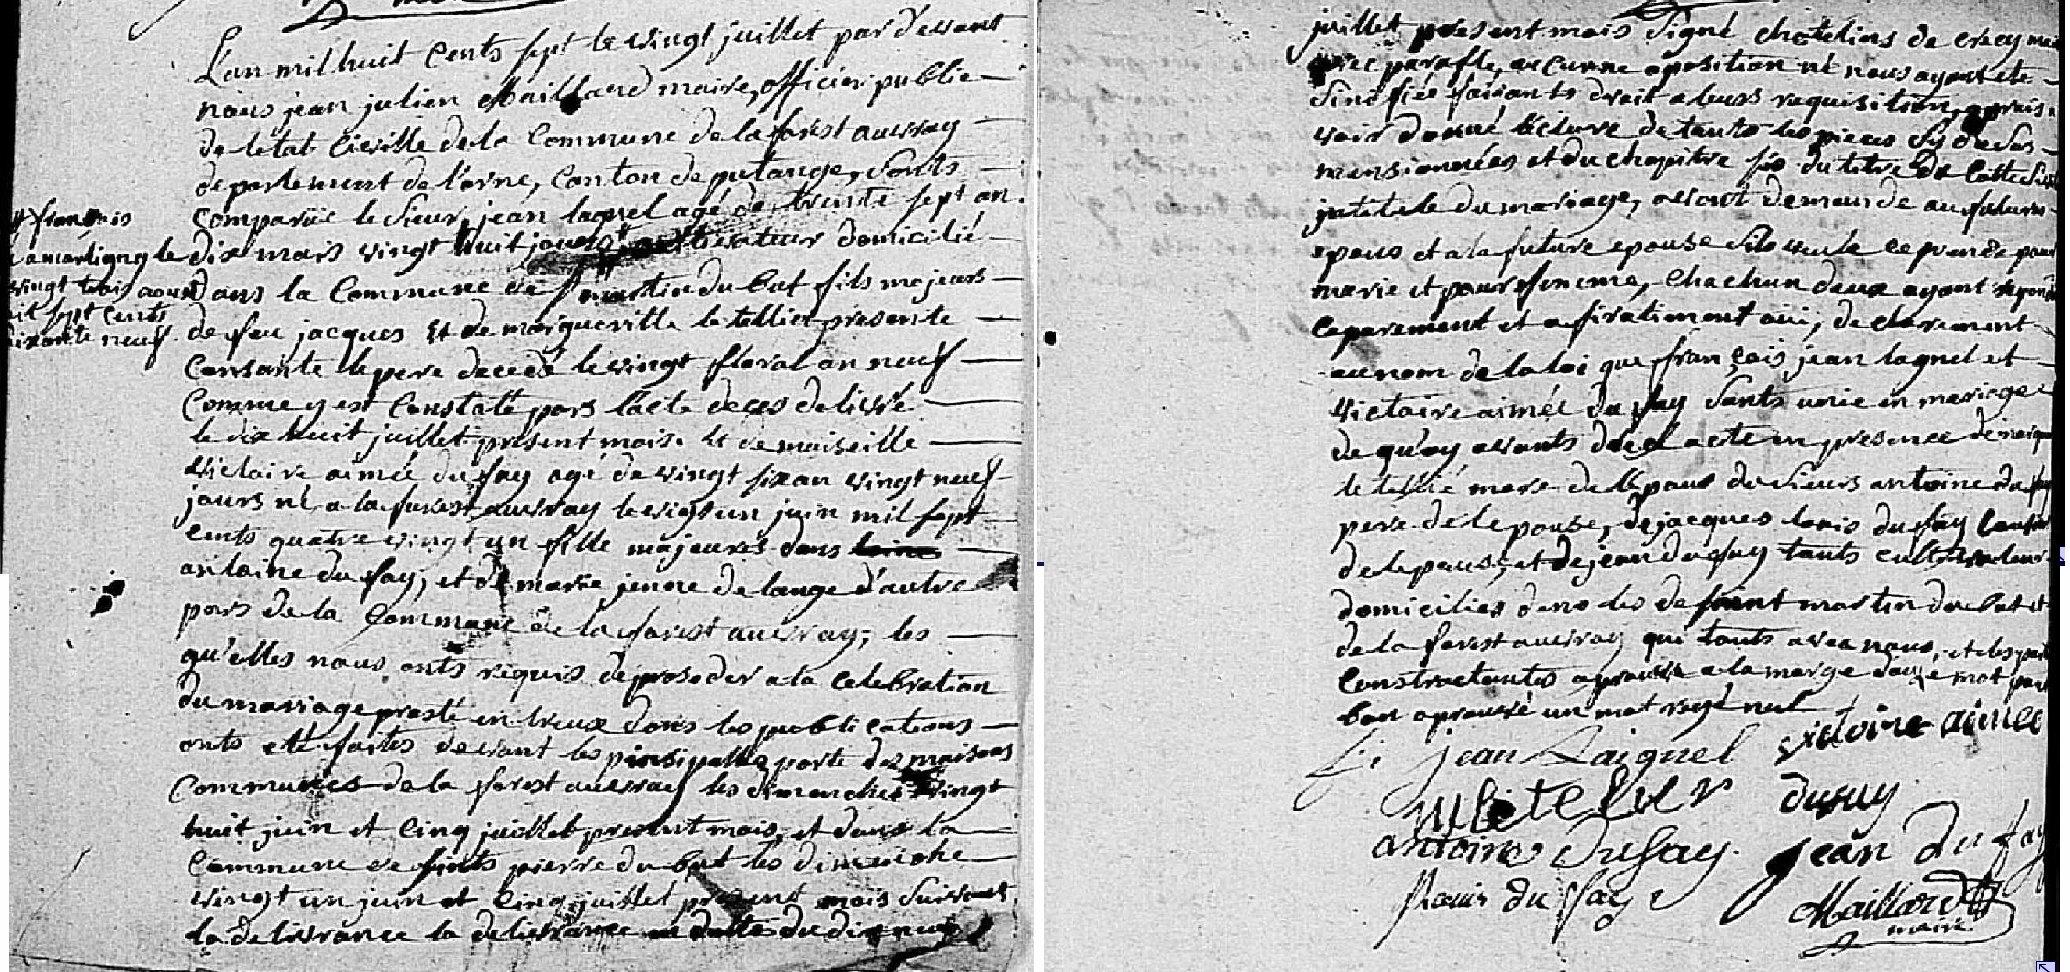 L'an mil huit cents sept le vingt juillet par devant
nous jean julien Maillard maire, officier public
de letat Civille de la Commune de la forest auvray
departement de l'orne, Canton de putange, sonts
Comparüe le sieur, jean laquel agé de trente sept an
françois
dix mois vingt huit jours cultivateur domicilié
né a martigny le
vingt trois aoust
mil sept cents
soixante neuf
dans la Commune de St martin du bat fils majeurs
de feu jacques Et de margueritte le tellier presente
Consante le pere decedé le vingt floral an neuf
Comme y est Constatté pars l'acte deces delivré
le dix huit juillet present mois. Et de maiselle
victoire aimée du fay agé de vingt six an vingt neuf
jours né a la forest auvray le vigt un juin mil sept
cents quatre vingt un fille majeures dans
antoine du fay, et de marie jenne de lange d'autre
pars de la Commune de la forest auvray; les
qu'elles nous onts requis de prosoder a la Celebration
du mariage projté entreux dons les publications
onts eté faites devant les pinsipalle porte des maisons
Communes de la forest auvray les dimenches vingt
huit juin et Cinq juillet present mois, et dans la
Commune de saints pierre du bat les dimenche
vingt un juin et Cinq juillet present mois suivant
la delivrance la delivrance en datte du dix neuf
juillet present mois Signé chatelins de crecy
avec parafle, aucunne oposition ne nous ayant eté
Sinifiée faisants droit a leurs requisition, aprais
voir donné lecture de tauts les pieces cy desas
mensionnées et du chapitre six du titre De Codde Civil
jntitule du mariage, avont demande au futurs
epous et a la future epouse sils veule ce prandre pour
marie et pour femme, chachun deux ayant repondu
ceparement et afirativement oui, declarement
au nom de la loi que françois jean lagnel et
victoire aimée du fay sonts unie en mariage
de qu'oy avonts dressé acte en presence de
le tellié mere de l'epous du sieurs antoine du fay
pere de l'epouse, de jacques louis du fay
de l'epaus, et de jean du fay tauts cultivateurs
domicilies dans les de saint martin du bat et
de la forest auvray qui tauts avec nous, et les
Constractantes aprouvé a la marge douze mot pour
bon aprouvé un mot rayé nul
f. jean Laignel victoire aimée
m le telier dufay
antoine Dufay. jean du fay
Louis du fay
Maillard
maire